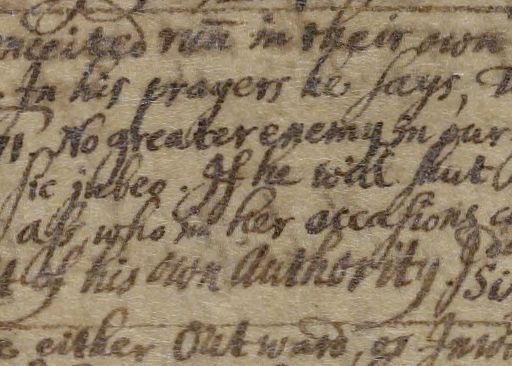 conceited run in their own
. In his prayers he says,
No greater enemy in our
Sic jubeo. If he will shut
ass, who in her occasions
of his own Authority. Si
either Outward, or Inw